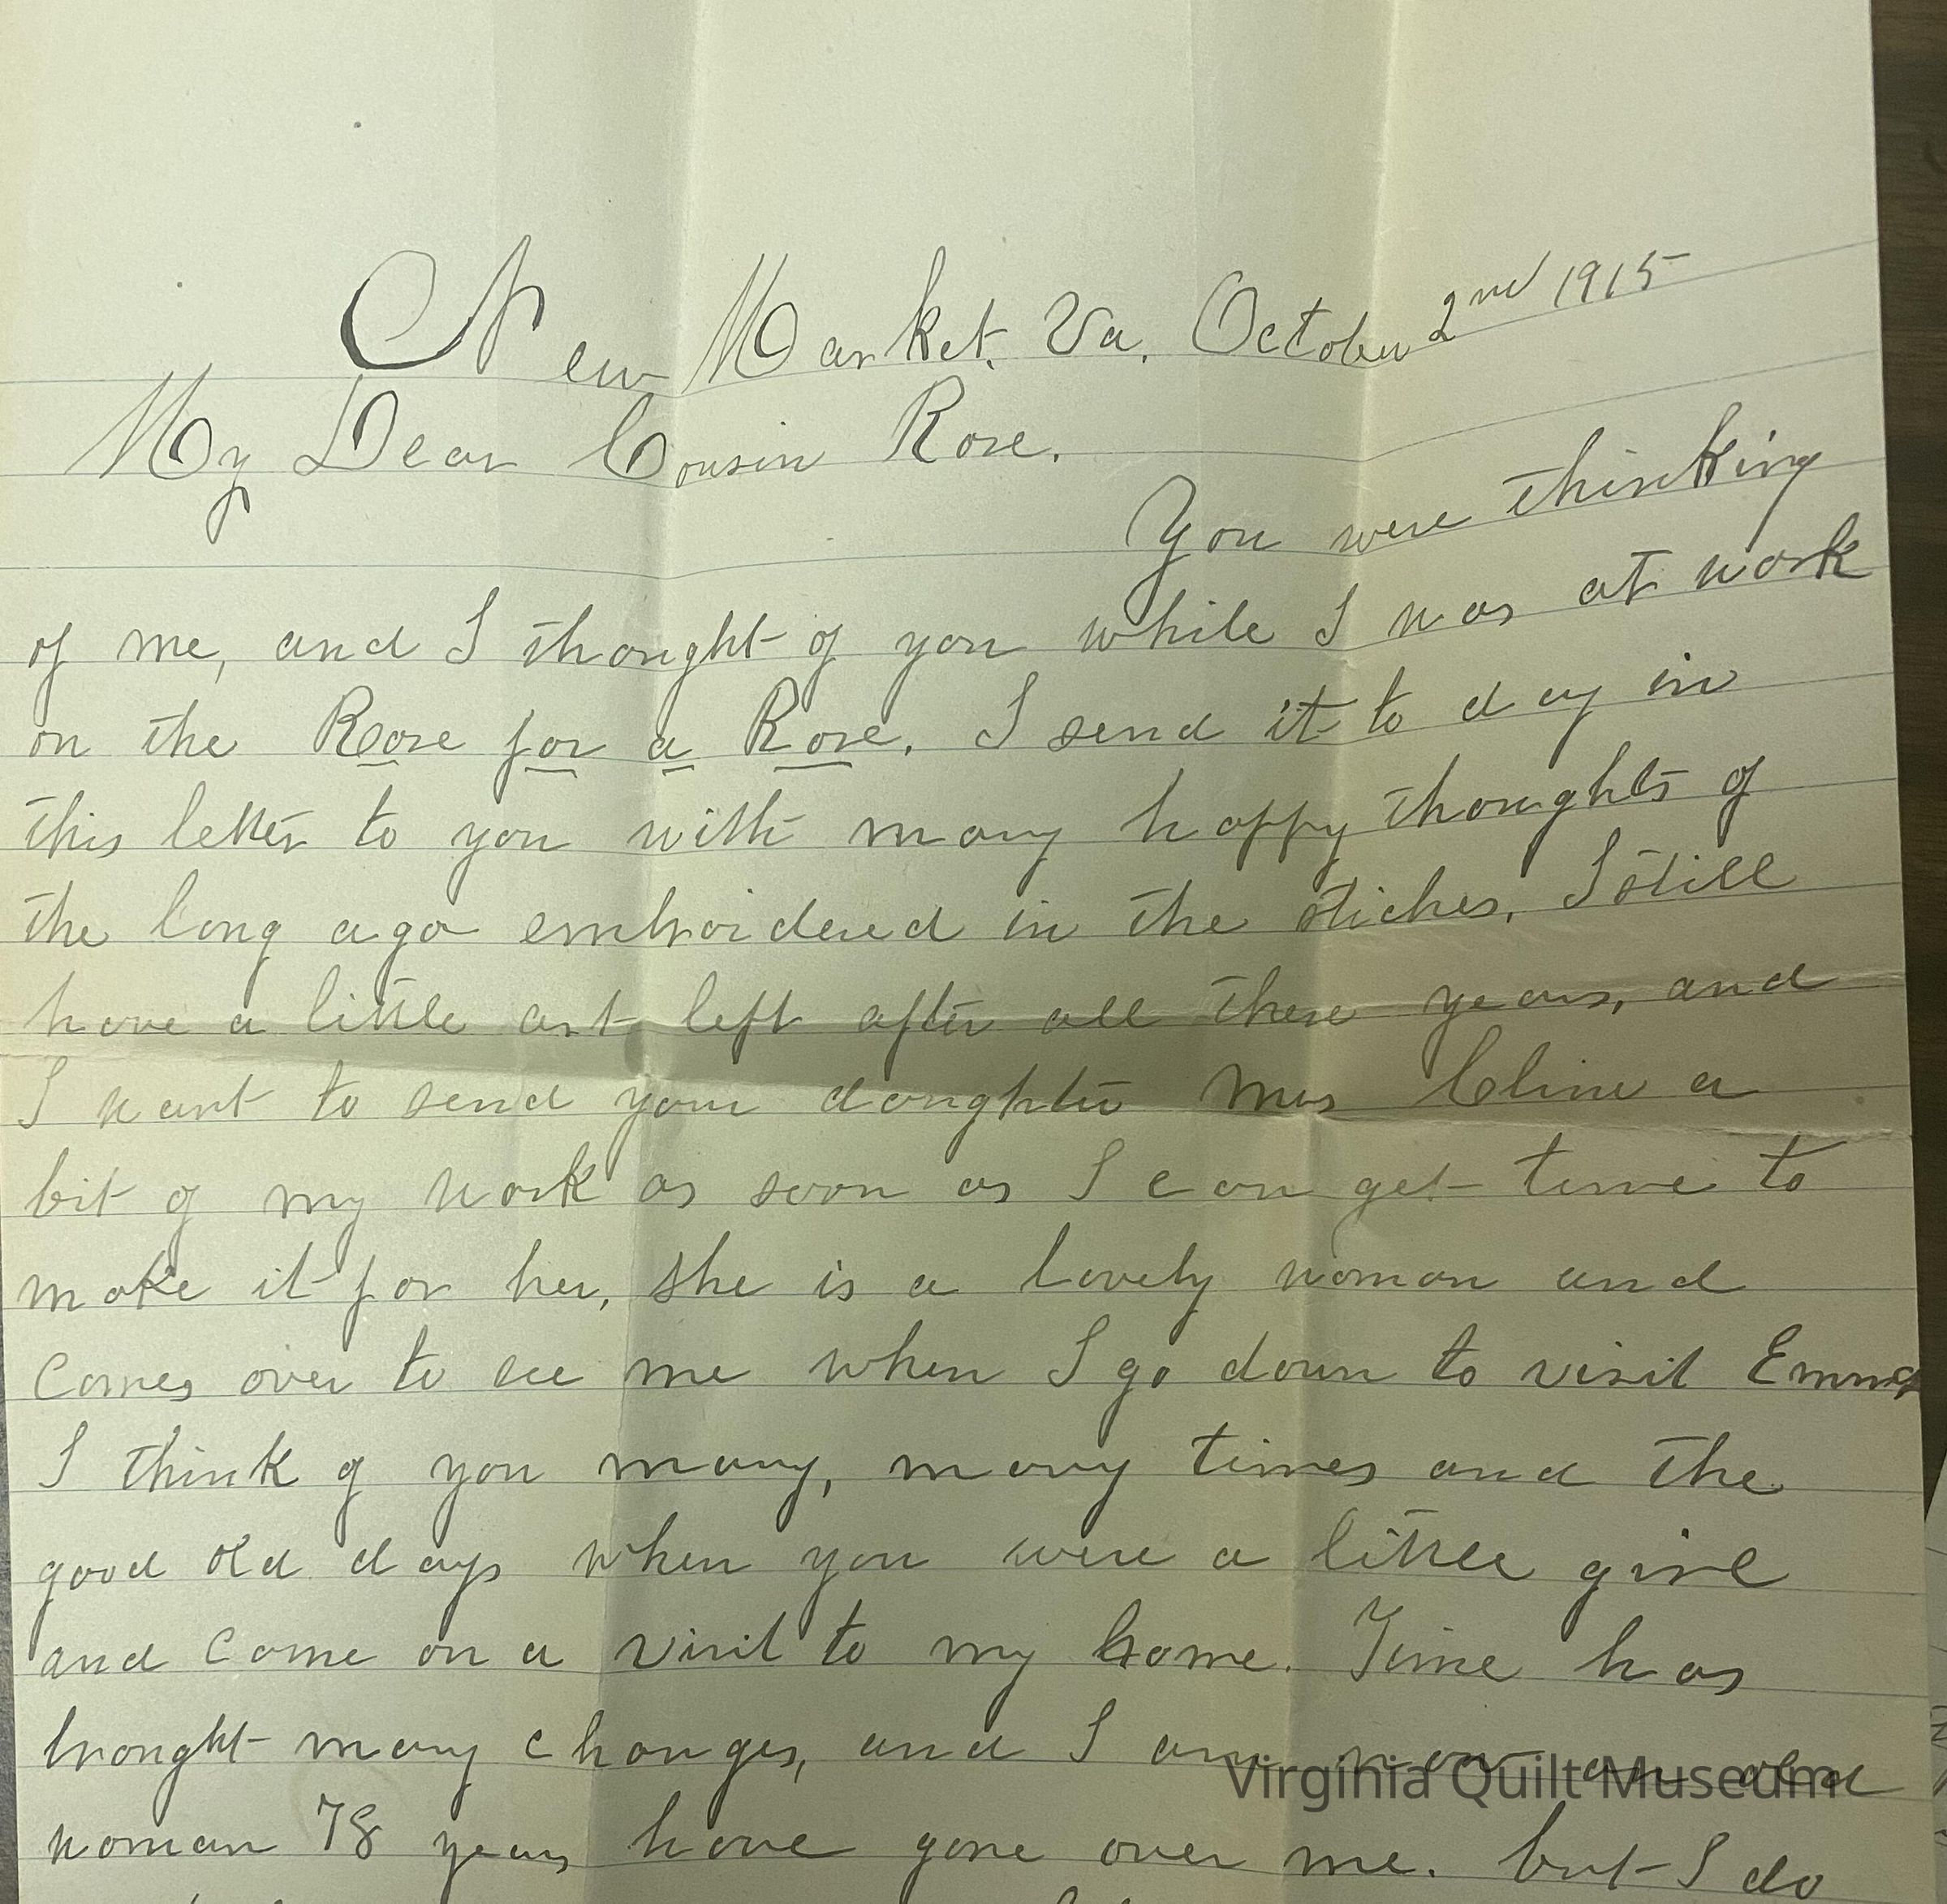 New Market, Va. October 2nd 1915
My Dear Cousin Rose.
You were thinking
of me, and I thought of you while I was at work
on the Rose for a Rose. I send it to day in
this letter to you with many happy thoughts of
the long ago embroidered in the stiches, I still
have a little art left after all these years, and
I want to send your daughter Mrs Cline a
bit of my work as soon as I can get time to
make it for her, she is a lovely woman and
comes over to see me when I go down to visit Emma
I think of you many, many times and the
good old days when you were a little girl
and come on a visit to my home. Time has
brought many changes, and I am now an old
Virginia Quilt Museum
woman 78 years have gone over me. but I do